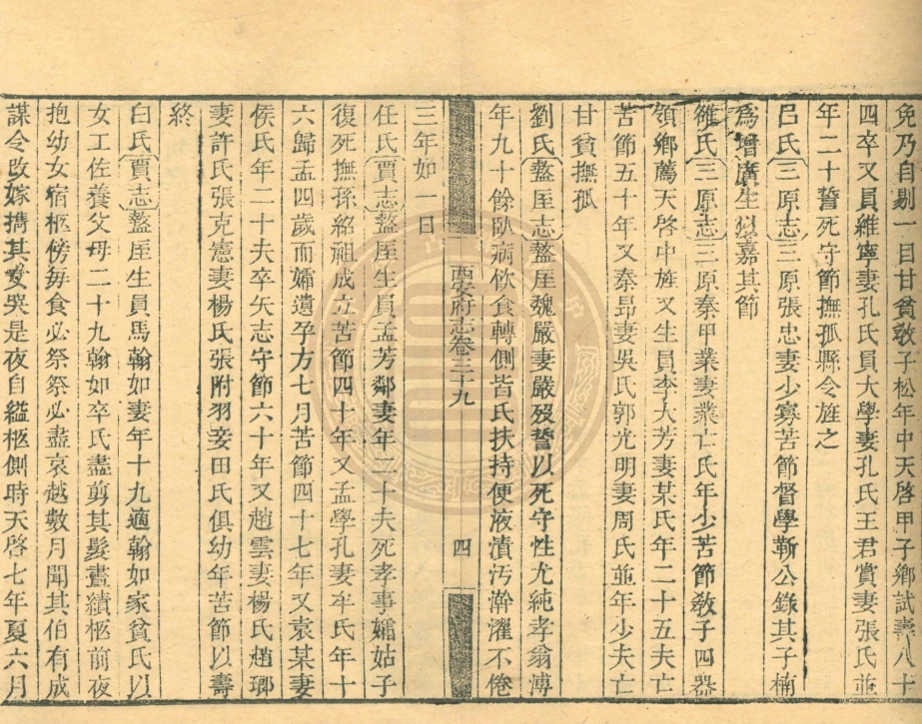 免乃自剔一目甘貧敎子松年中天啓甲子鄉試壽八十
四卒又員維寧妻孔氏員大學妻孔氏王君賞妻張氏並
年二十誓死守節撫孤縣令旌之
呂氏三原志三原張忠妻少寡苦節督學靳公錄其子楠
爲增廣生以嘉其節
雒氏三原志三原秦甲業妻業亡氏年少苦節敎子四器
領鄉薦天啓中旌又生員李大芳妻某氏年二十五夫亡
苦節五十年又秦昻妻吳氏郭光明妻周氏並年少夫亡
甘貧撫孤
劉氏盩厔志盩厔魏嚴妻嚴歿誓以死守性尤純孝翁溥
年九十餘臥病飲食轉側皆氏扶持便液漬汚澣濯不倦
西安府志卷三十九
四
三年如一日
任氏賈志盩厔生員孟芳鄰妻年二十夫死孝事孀姑子
復死撫孫紹祖成立苦節四十年又孟學孔妻牟氏年十
六歸孟四歲而孀遺孕方七月苦節四十七年又袁某妻
侯氏年二十夫卒矢志守節六十年又趙雲妻楊氏趙瑯
妻許氏張克憲妻楊氏張附羽妾田氏俱幼年苦節以壽
終
白氏賈志盩厔生員馬翰如妻年十九適翰如家貧氏以
女工佐養父母二十九翰如卒氏盡剪其髮晝績柩前夜
抱幼女宿柩傍每食必祭祭必盡哀越數月聞其伯有成
謀令改嫁擕其女哭是夜自縊柩側時天啓七年夏六月